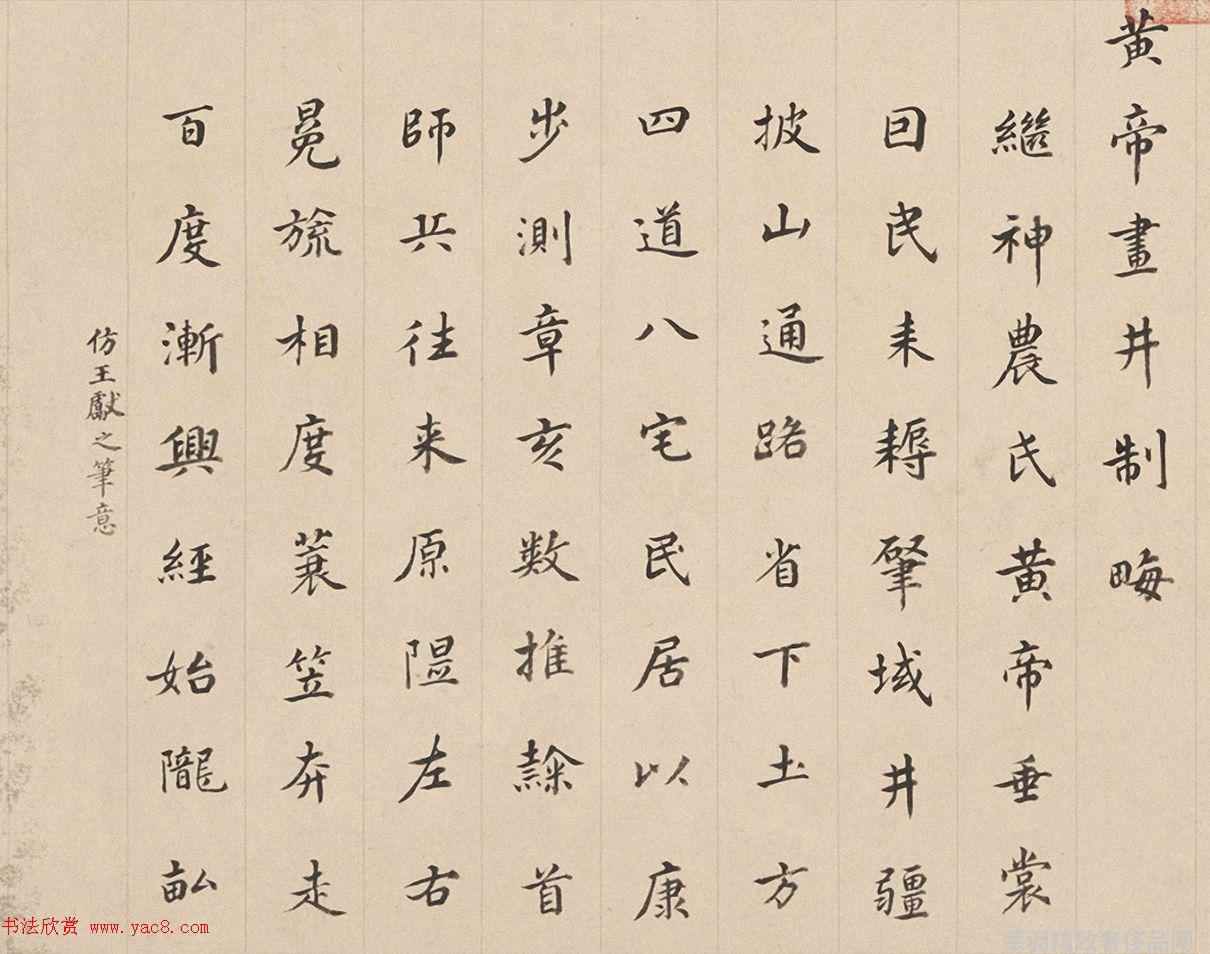 黄帝畫井制畮
繼神農氏黄帝垂裳
囙民耒耨肇域井疆
披山通路省下土方
四道八宅民居以康
步測章亥数推隸首
師兵往来原隰左右
冕旒相度蓑笠奔走
百度漸興經始隴畝
仿王獻之筆意
书法欣赏 www.yac8.com